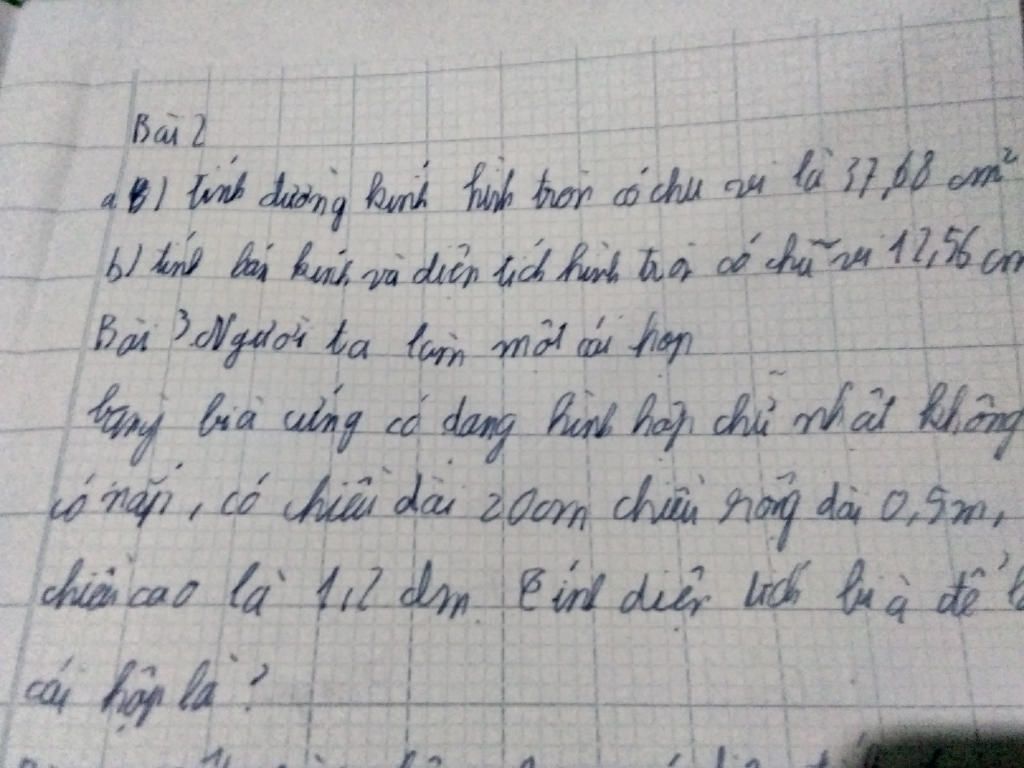 Bài 2
a) tính đường kính hình tròn có chu vi là 37,68 cm²
b) tính bán kính và diện tích hình tròn có chũ vi 12,56 cm
Bài 3. Người ta làm một cái hợp
bằng bià cứng có dạng hình hộp chữ nhật không
có nắp, có chiều dài 20cm chiều rông dài 0,5m,
chiều cao là 1,2 dm Tính diện tích bià để
cái hộp là?